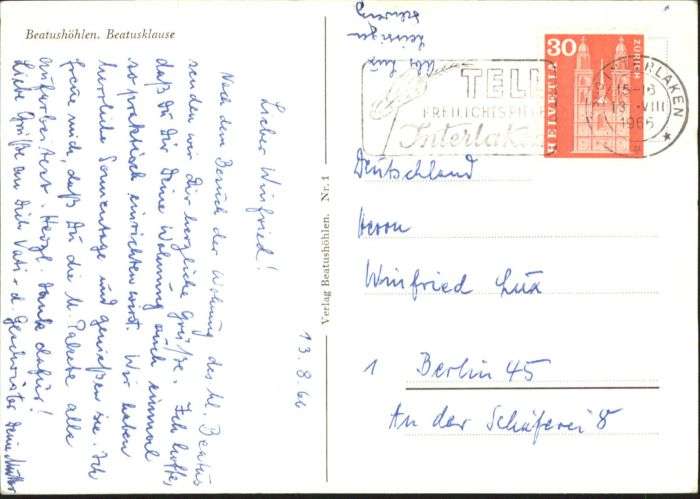 Beatushöhlen. Beatusklause
13.8.66
Lieber Winfried!
Nach dem Besuch der Wohnung des hl. Beatus
senden wir Dir herzliche Grüße. Ich hoffe,
daß Du Dir Deine Wohnung auch einmal
so praktisch einrichten wirst. Wir haben
herrliche Sonnentage und genießen sie. Ich
freue mich, daß Du die u. Pakete alle
aufgehoben hast. Herzl. Dank dafür!
Liebe Grüße an Dich Vati + d. Geschwister Deine Mutter
Verlag Beatushöhlen. Nr. 1
TELL
FREILICHTSPIELE
Interlaken
INTERLAKEN
15-18
13. VIII
1966
30
HELVETIA
ZÜRICH
Deutschland
Herrn
Winfried Lux
1 Berlin 45
An der Schäferei 8